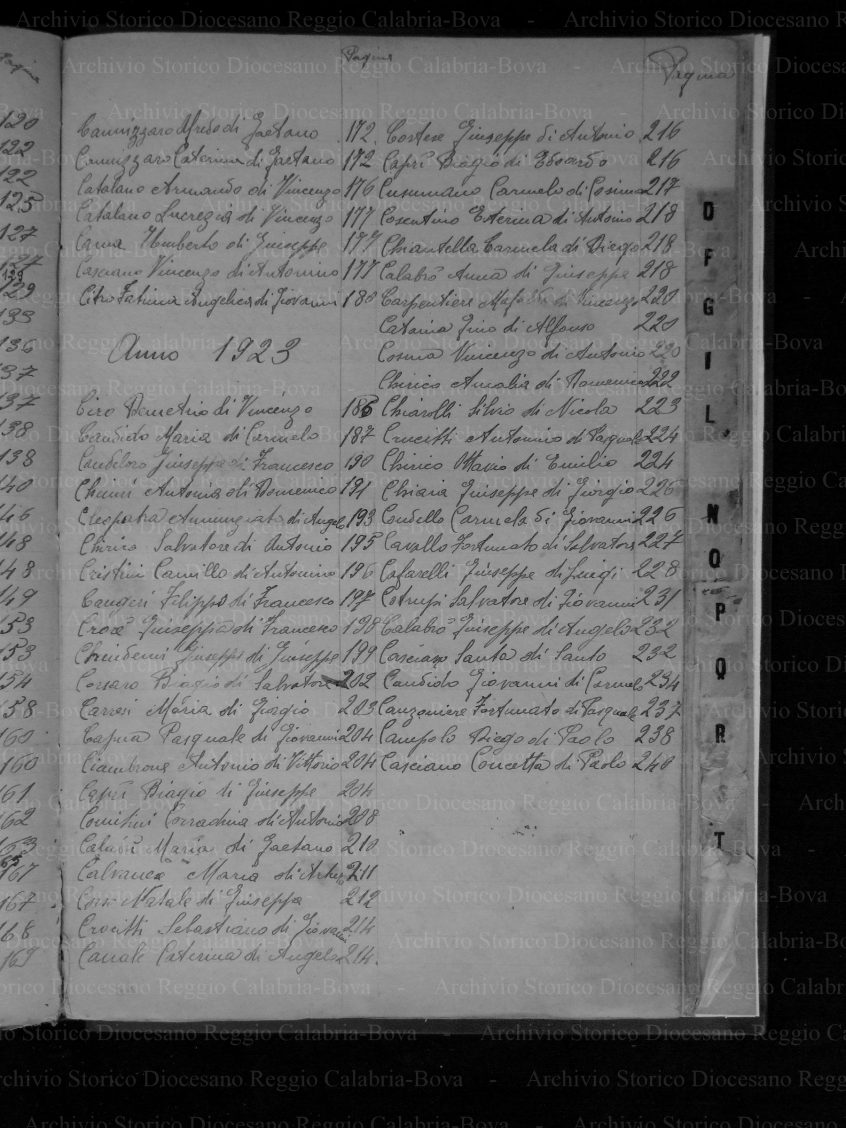 Pagina
Pagina
Pagina
120
122
122
125
127
127
129
129
133
136
137
137
138
138
140
146
148
148
149
153
153
154
158
160
160
161
162
163
165
167
167
168
169
Cannizzaro Alfredo di Gaetano 172
Cannizzaro Caterina di Gaetano 172
Catalano Armando di Vincenzo 176
Catalano Lucrezia di Vincenzo 177
Canna Umberto di Giuseppe 177
Casciano Vincenzo di Antonino 177
Citro Fatima Angelica di Giovanni 180
Anno 1923
Ciro Demetrio di Vincenzo 186
Candido Maria di Carmelo 187
Candeloro Giuseppe di Francesco 190
Chunni Antonia di Domenico 191
Cleopatra Annunziata di Angelo 193
Chirico Salvatore di Antonio 195
Cristini Camillo di Antonino 196
Cangeri Filippo di Francesco 197
Croce Giuseppa di Francesco 198
Chindemi Giuseppe di Giuseppe 199
Corsaro Biagio di Salvatore 202
Carresi Maria di Giorgio 203
Pasquale di Giovanni 204
Ciambrone Antonio di Vittorio 204
Caprì Biagio di Giuseppe 204
Corradina di Antonio 208
Maria di Gaetano 210
Calvanea Maria di 211
Corsi Natale di Giuseppa 212
Crocitti Sebastiano di Giovanni 214
Canale Caterina di Angelo 214
Cortese Giuseppe di Antonio 216
Caprì Biagio di Edoardo 216
Cusumano Carmelo di Cosimo 217
Cosentino Eterina di Antonio 218
Chiantella Carmela di Diego 218
Calabrò Anna di Giuseppe 218
Carpentieri di Vincenzo 220
Catania Gino di Alfonso 220
Cosma Vincenzo di Antonio 220
Chirico Amalia di Domenico 222
Chiarolli Silvio di Nicola 223
Crucitti Antonino di Pasquale 224
Chirico Ottavio di Emilio 224
Chiaia Giuseppe di Giorgio 226
Condello Carmela di Giovanni 226
Cavallo Fortunato di Salvatore 227
Cafarelli Giuseppe di Luigi 228
Cotrupi Salvatore di Giovanni 231
Calabrò Giuseppe di Angelo 232
Casciano Santa di Santo 232
Candido Giovanni di Carmelo 234
Canzoniere Fortunato di Pasquale 237
Campolo Diego di Paolo 238
Casciano Concetta di Paolo 240
D
F
G
I
L
N
O
P
Q
R
T
Archivio Storico Diocesano Reggio Calabria-Bova